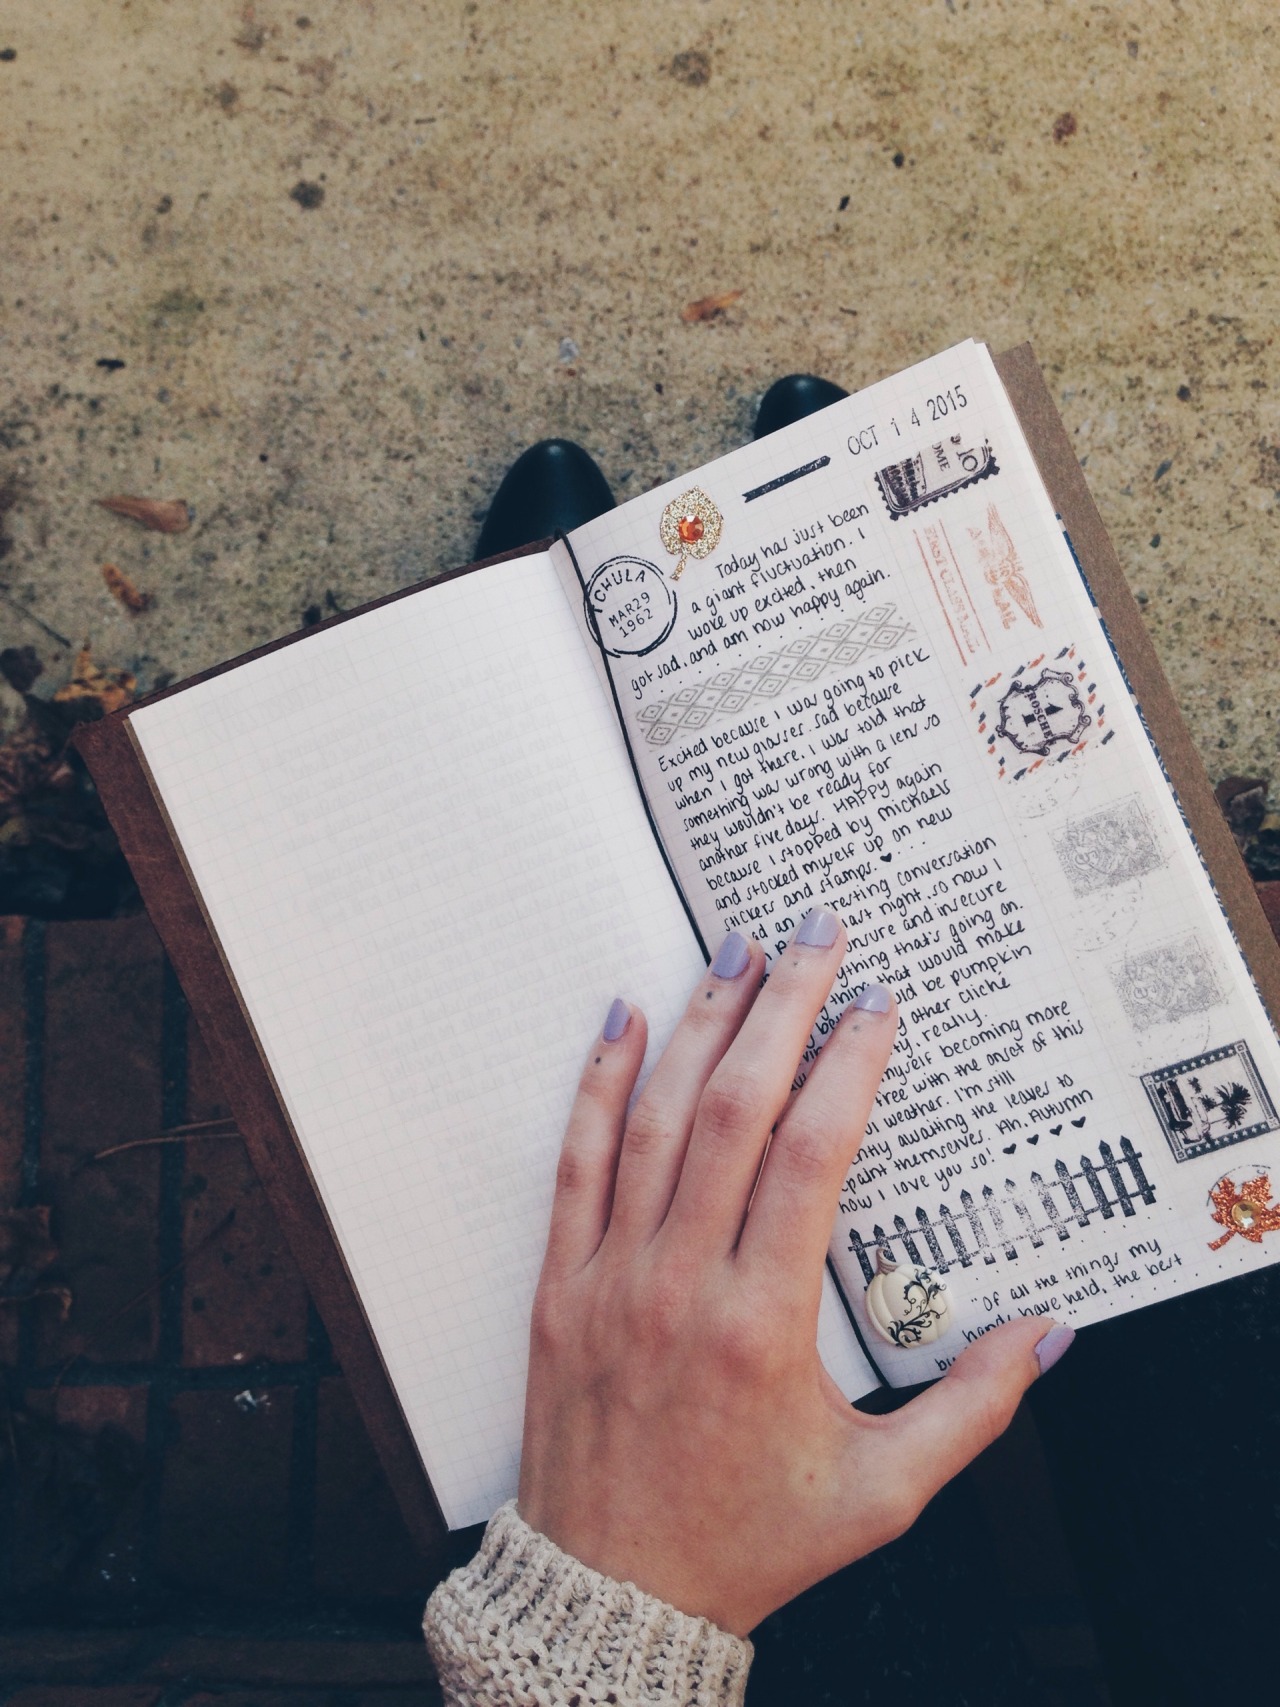 OCT 14 2015
10
OME
CHULA
MAR 29
1962
Today has just been
a giant fluctuation. I
woke up excited, then
got sad, and am now happy again.
Excited because I was going to pick
up my new glasses. Sad because
when I got there, I was told that
something was wrong with a lens so
they wouldn't be ready for
another five days. HAPPY again
because I stopped by michaels
and stocked myself up on new
stickers and stamps. ♥...
ad an interesting conversation
last night, so now I
unsure and insecure
ything that's going on.
thing that would make
uld be pumpkin
y other cliché
ty, really.
myself becoming more
free with the onset of this
ul weather. I'm still
ently awaiting the leaves to
paint themselves. Ah, Autumn
how I love you so! ♥ ♥ ♥ ♥
"Of all the things my
hands have held, the best
FIRST CLASS
AIR MAIL
1
GROSCHE